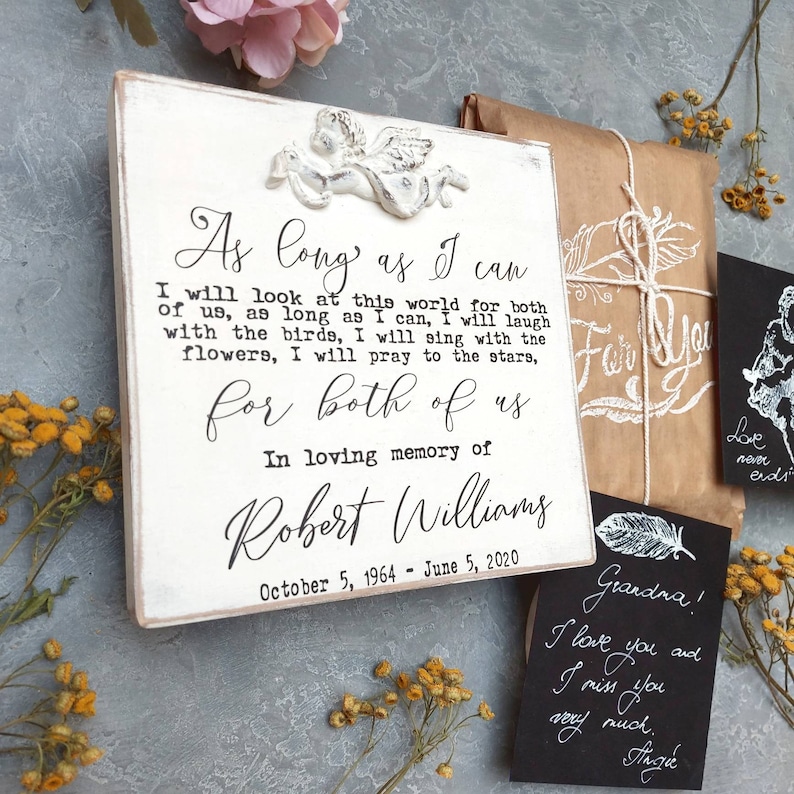 As long as I can
I will look at this world for both
of us, as long as I can, I will laugh
with the birds, I will sing with the
flowers, I will pray to the stars,
for both of us
In loving memory of
Robert Williams
October 5, 1964 - June 5, 2020
For You
Love
never
ends"
Grandma!
I love you and
I miss you
very much.
Angie